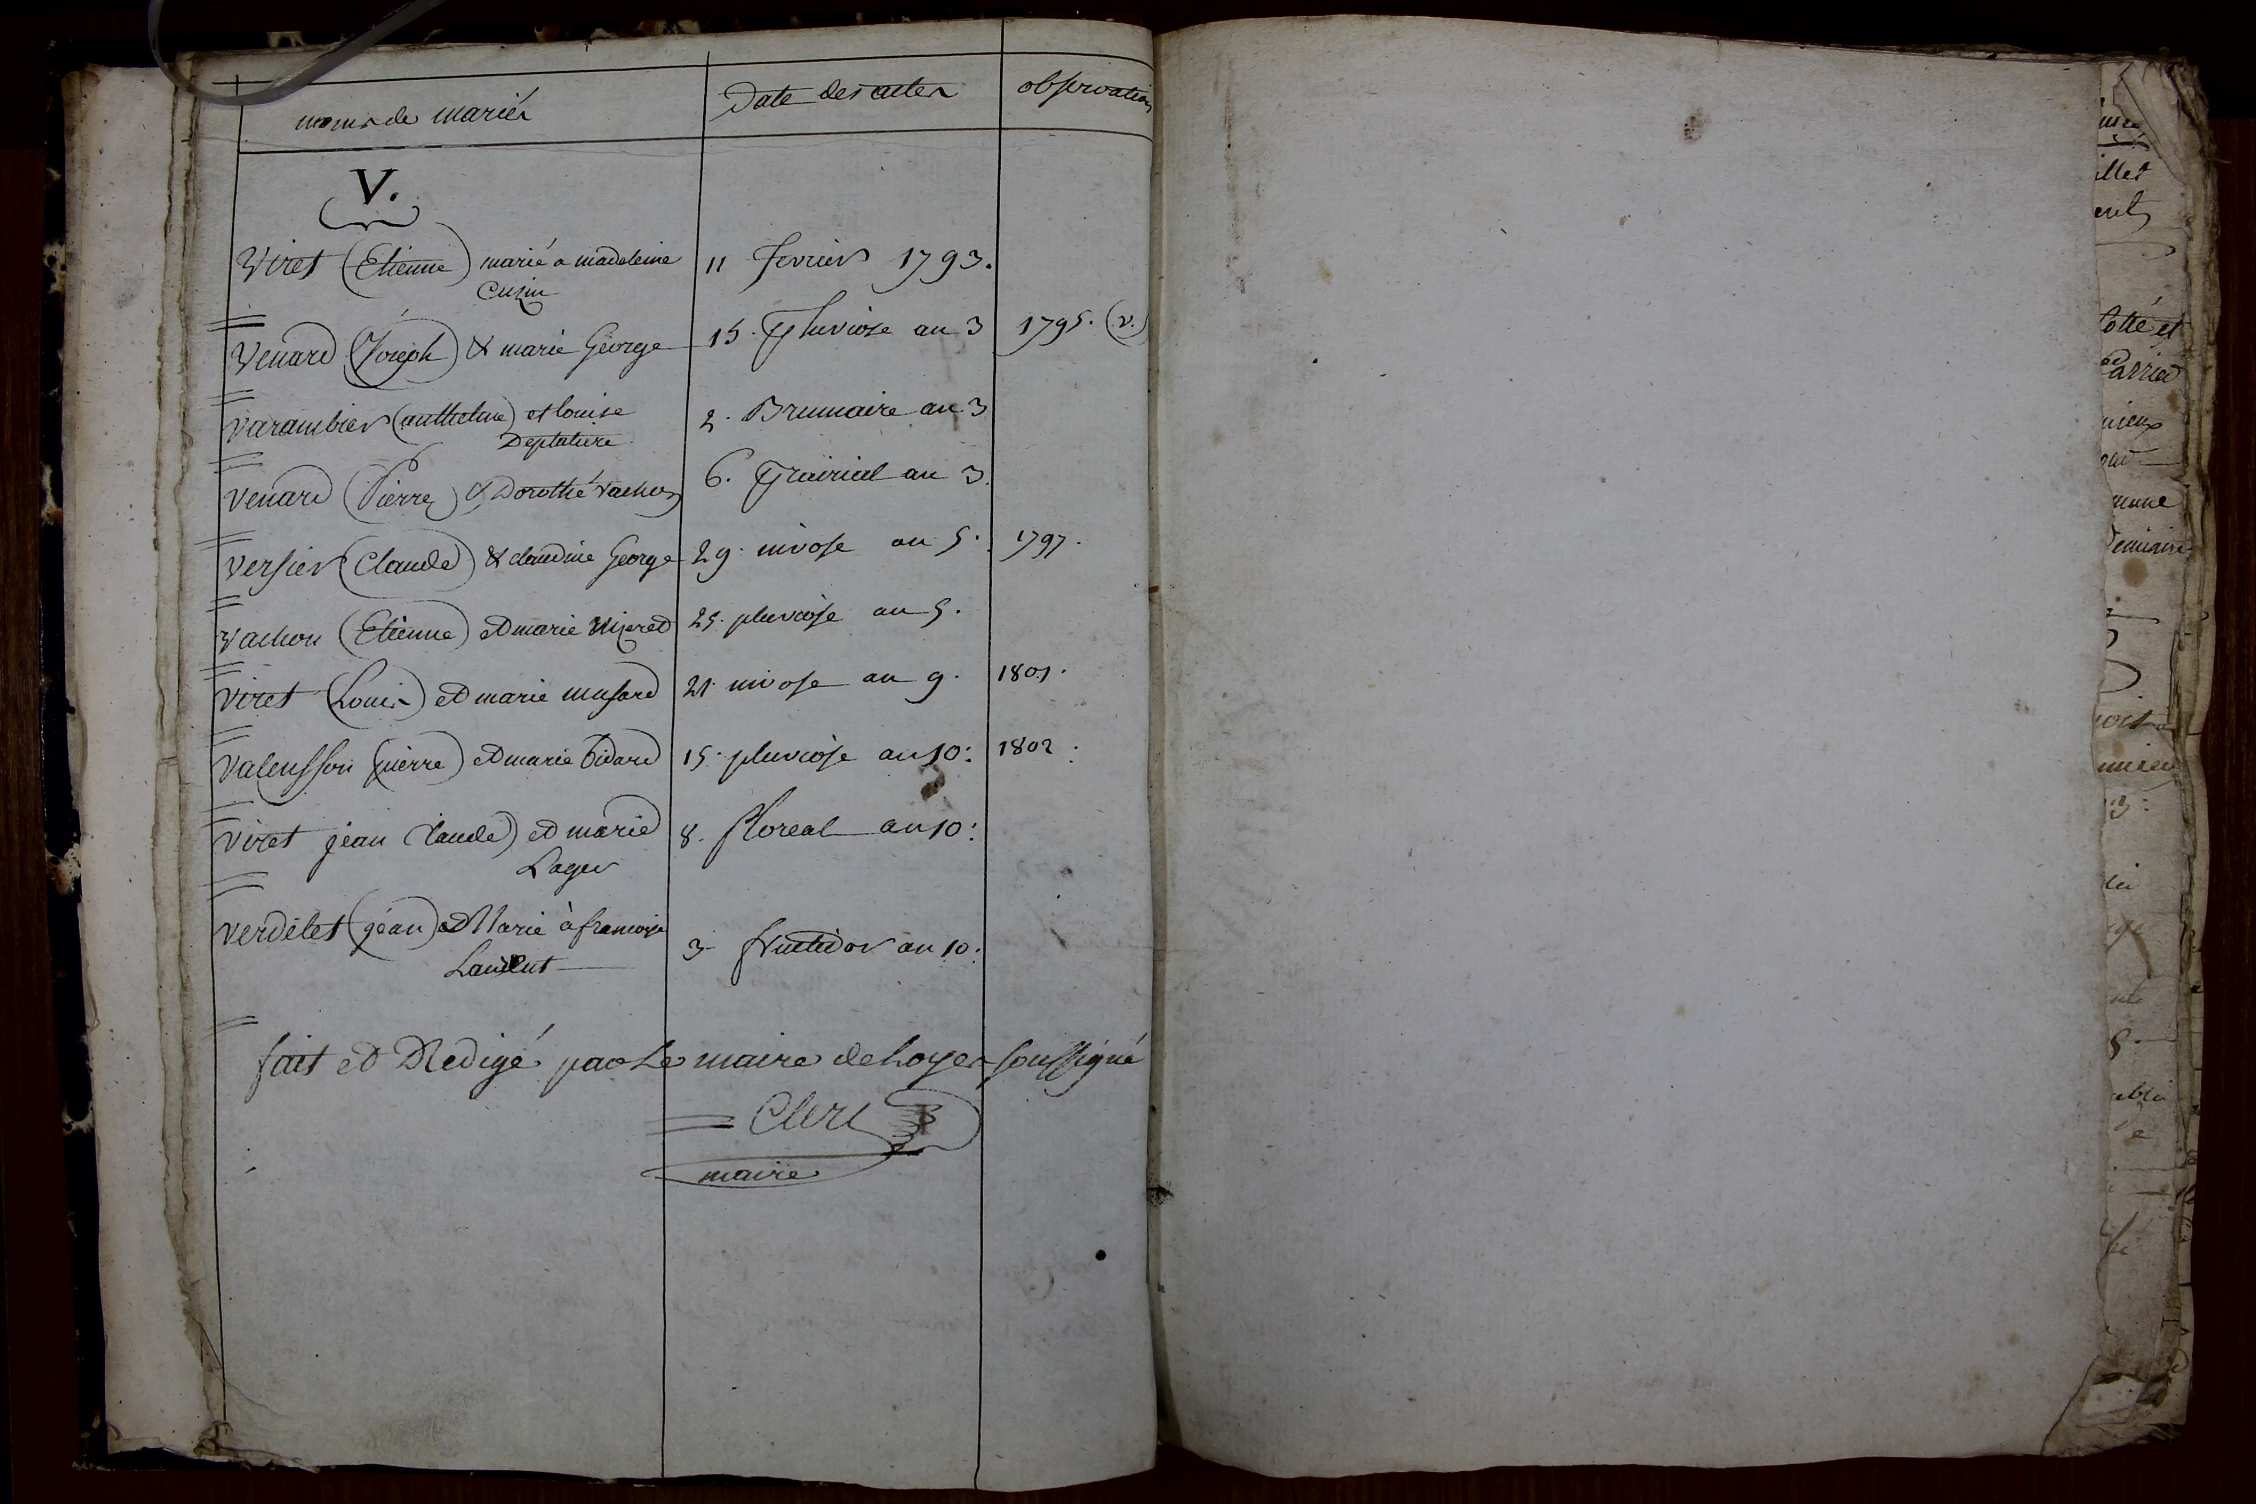 noms de mariés Date des actes observation
V.
Viret (Etienne) marié a madeleine 11 fevrier 1793.
Cuzin
Venard (Joseph) & marie George 15. Pluviose an 3 1795. (v.)
Varambier (anthelme) et louise 2. Brumaire an 3
Deplatiere
Venard (Pierre) & Dorothé vachon 6. Prairial an 3.
Versier (Claude) & claudine George 29. nivose an 5. 1797.
Vachon (Etienne) et marie 25. pluviose an 5.
Viret (Louis) et marie musard 21. nivose an 9. 1801.
Valensson (pierre) et marie Bidard 15. pluviose an 10: 1802.
Viret jean Claude) et marie 8. floreal an 10:
Lager
Verdelet (jéan) et Marie à francoise 3 fructidor an 10:
Laurent
fait et Redigé par Le maire de hoyes soussigné
Clerc
maire
illet
cotté et